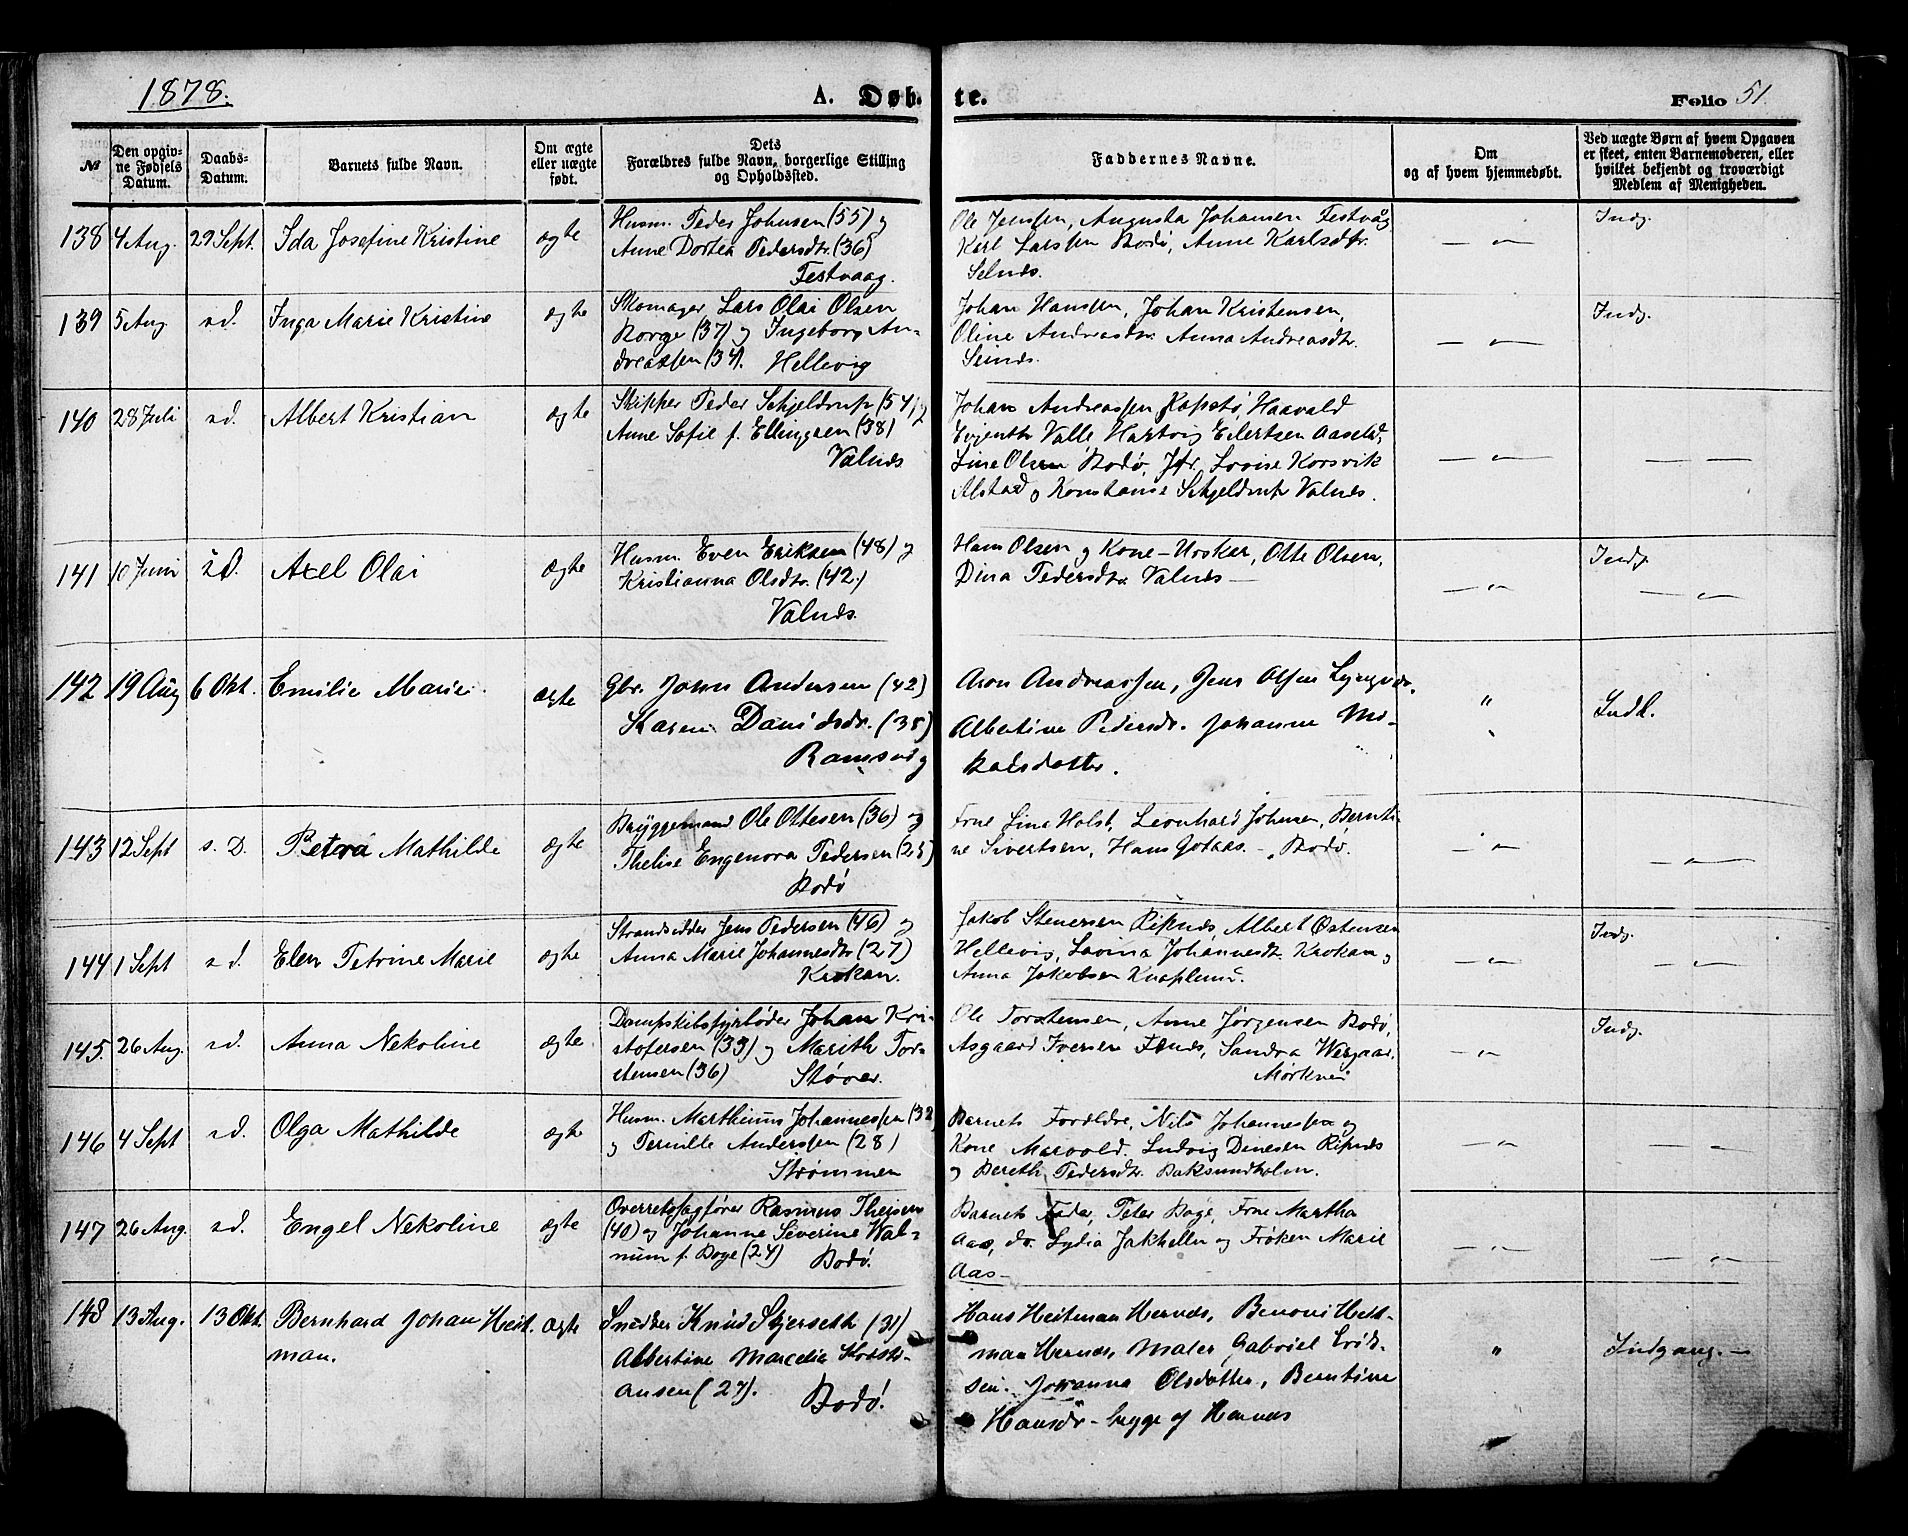 1878. A. Døbte. Folio 51.
№ | Den opgivne Fødsels Datum. | Daabs-Datum. | Barnets fulde Navn. | Om ægte eller uægte født. | Dets Forældres fulde Navn, borgerlige Stilling og Opholdssted. | Faddernes Navne. | Om og af hvem hjemmedøbt. | Ved uægte Børn af hvem Opgaven er skeet, enten Barnemoderen, eller hvilket bekjendt og troværdigt Medlem af Menigheden.
138 4 Aug. 29 Sept. Ida Josefine Kristine ægte
Husm. Peder Johnsen (55) og
Anne Dortea Pedersdtr. (36)
Festvaag.
Ole Jenssen, Augusta Johansen Festvåg
Karl Larssen Bodø, Anne Karlsdtr.
Selnæs.
— " —
Indg.
139 5 Aug. s.d. Inga Marie Kristine ægte
Skomager Lars Olai Olsen
Borge (37) og Ingeborg An-
dreassen (34). Hellevig
Johan Hanssen, Johan Kristensen,
Oline Andreasdtr. Anna Andreasdtr.
— " —
Indg.
140 28 Juli s.d. Albert Kristian ægte
Skipper Peder Schjeldrup (54) og
Anne Sofie f. Ellingsen (38)
Valnæs
Johan Andreassen Haavald
Valle Hartvig Eilertsen
Line Olsen Bodø, Jfr. Lovise Korsvik
Alstad og Konstanse Schjeldrup Valnæs.
— " —
— —
141 10 Juni s.d. Axel Olai ægte
Husm. Even Eriksen (48) og
Kristianna Olsdtr. (42)
Valnæs.
Hans Olsen og Kone — Otte Olsen,
Dina Pedersdtr. Valnæs —
— " —
Indg.
— " —
142 19 Aug 6 Okt. Emilie Marie. ægte
Gbr. John Andersen (42)
Karen Danidsdr. (38)
Ramsvig
Aron Andreassen, Jens Olsen
Albertine Pedersdr. Johanne Mi-
kalsdatter.
"
Indl.
143 12 Sept s. D. Petra Mathilde ægte
Bryggemand Ole Ottesen (36) og
Engenora Pedersen
Bodø
Frue Lina Holst, Leonhard Johnsen, Bernti-
ne Sivertsen, Hans Gotaas. — Bodø.
— " —
— " —
144 1 Sept s.d. Elen Petrine Marie ægte
Strandsidder Jens Pedersen (46) og
Anna Marie Johannesdtr (27)
Krokan.
Jakob Stenersen Ripnæs, Albert Østensen
Hellevig, Lovina Johannesdtr. Krokan og
Anna Jakobsen Knaplund.
— " —
Indg.
— " —
145. 26 Aug. s.d. Anna Nekoline ægte
Dampskibsfyrbøder Johan Kri-
stofersen (39) og Marith Tor-
stensen (36) Støver.
Ole Torstensen, Anne Jørgensen Bodø,
Asgaard Iversen Sandra
— " —
Indg.
146 4 Sept s.d. Olga Mathilde ægte
Husm. Marthinus Johannessen (32
og Pernille Anderssen (28)
Strømmen
Barnets Forældre, Nils Johannessen og
Kone Marvold. Ludvig Dinesen Ripnæs
og Bereth Pedersdtr. Baksundholm.
— " —
— " —
147 26 Aug. s.d. Engel Nekoline ægte
Overretssagfører Rasmus
(40) og Johanne Severine Wal-
num f. Boge (24) Bodø.
Barnets Fader, Peter Boge, Frue Martha
Aas, do. Lydia Jakhelln og Frøken Marie
Aas —
— " —
— " —
148 13 Aug. 13 Okt. Bernhard Johan Heit- ægte
man.
Snedker Knud Skjerseth (31)
Albertine Marcelia Kristi-
ansen (27).
Bodø.
Hans Heitman Hernæs, Benoni Heit-
man Hernæs, Maler Gabriel Erik-
sen. Johanna Olsdatter, Berntine
Hansdr — begge af Hernæs
"
Indgang. —